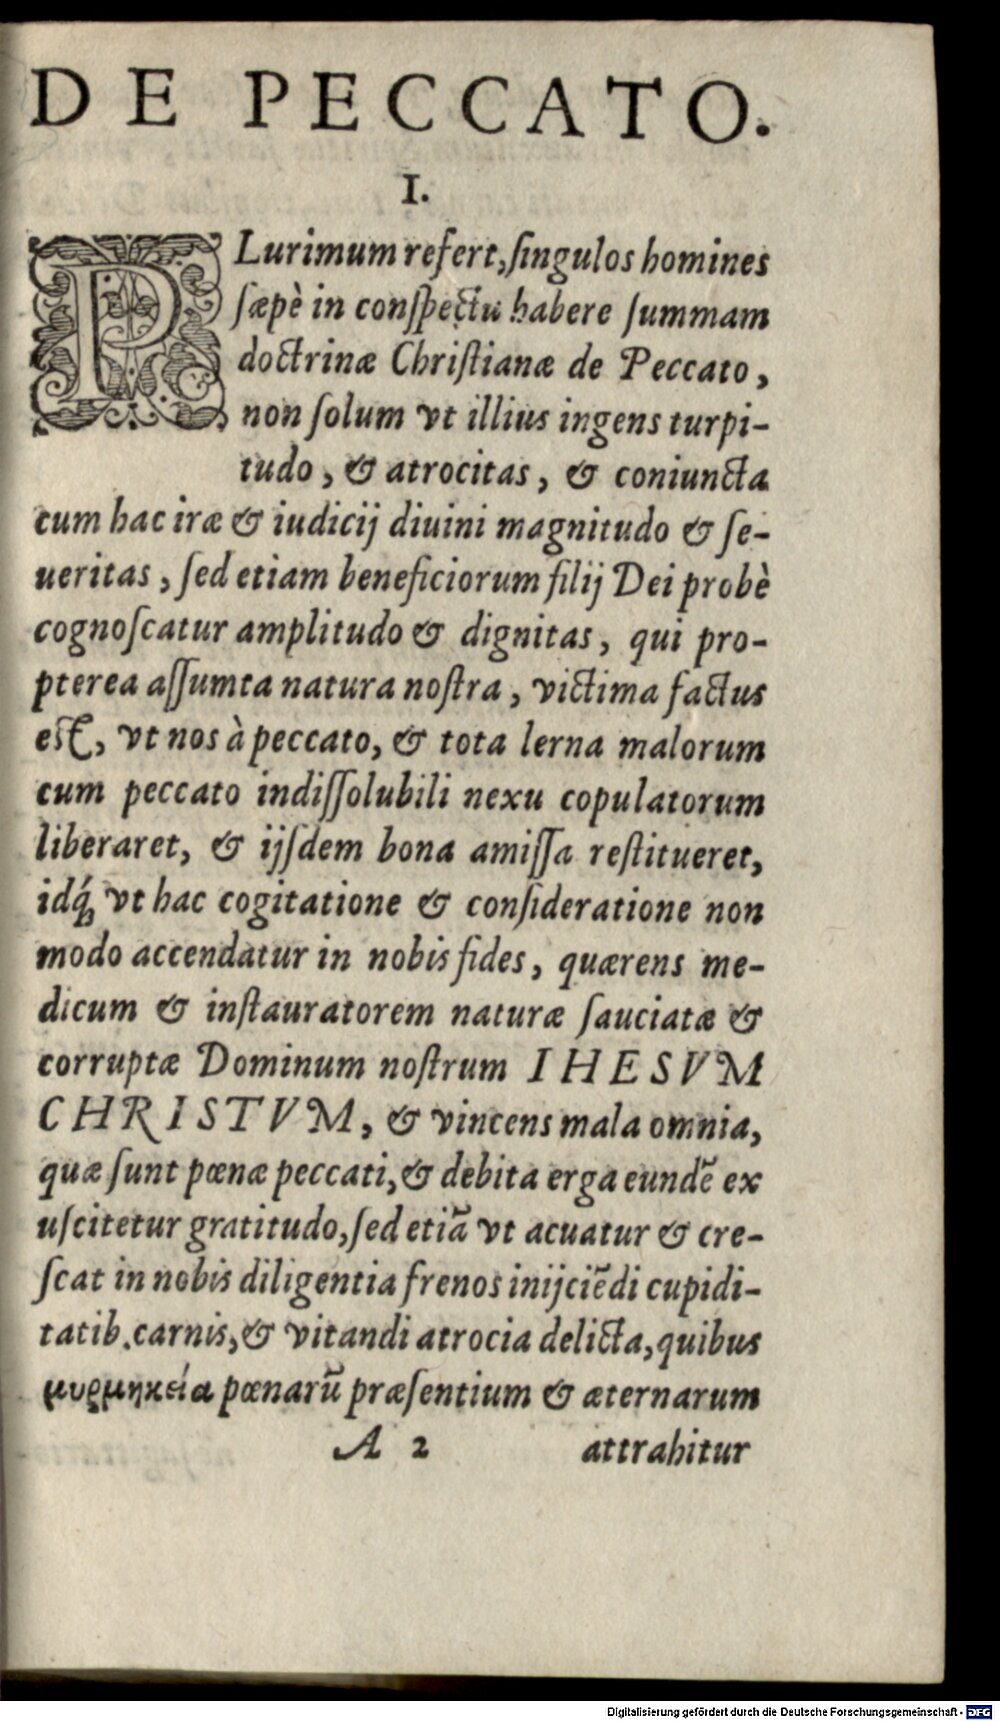 DE PECCATO.
I.
PLurimum refert, ſingulos homines
ſæpè in conſpectu habere ſummam
doctrinæ Chriſtianæ de Peccato,
non ſolum vt illius ingens turpi-
tudo, & atrocitas, & coniuncta
cum hac iræ & iudicij diuini magnitudo & ſe-
ueritas, ſed etiam beneficiorum filij Dei probè
cognoſcatur amplitudo & dignitas, qui pro-
pterea aſſumta natura noſtra, victima factus
eſt, vt nos à peccato, & tota lerna malorum
cum peccato indiſſolubili nexu copulatorum
liberaret, & ijſdem bona amiſſa reſtitueret,
idq́; vt hac cogitatione & conſideratione non
modo accendatur in nobis fides, quærens me-
dicum & inſtauratorem naturæ ſauciatæ &
corruptæ Dominum noſtrum IHESVM
CHRISTVM, & vincens mala omnia,
quæ ſunt pœnæ peccati, & debita erga eundẽ ex
uſcitetur gratitudo, ſed etiã vt acuatur & cre-
ſcat in nobis diligentia frenos inijciẽdi cupidi-
tatib. carnis, & vitandi atrocia delicta, quibus
μυρμηκεία pœnarũ præſentium & æternarum
A 2 attrahitur
Digitalisierung gefördert durch die Deutsche Forschungsgemeinschaft - DFG